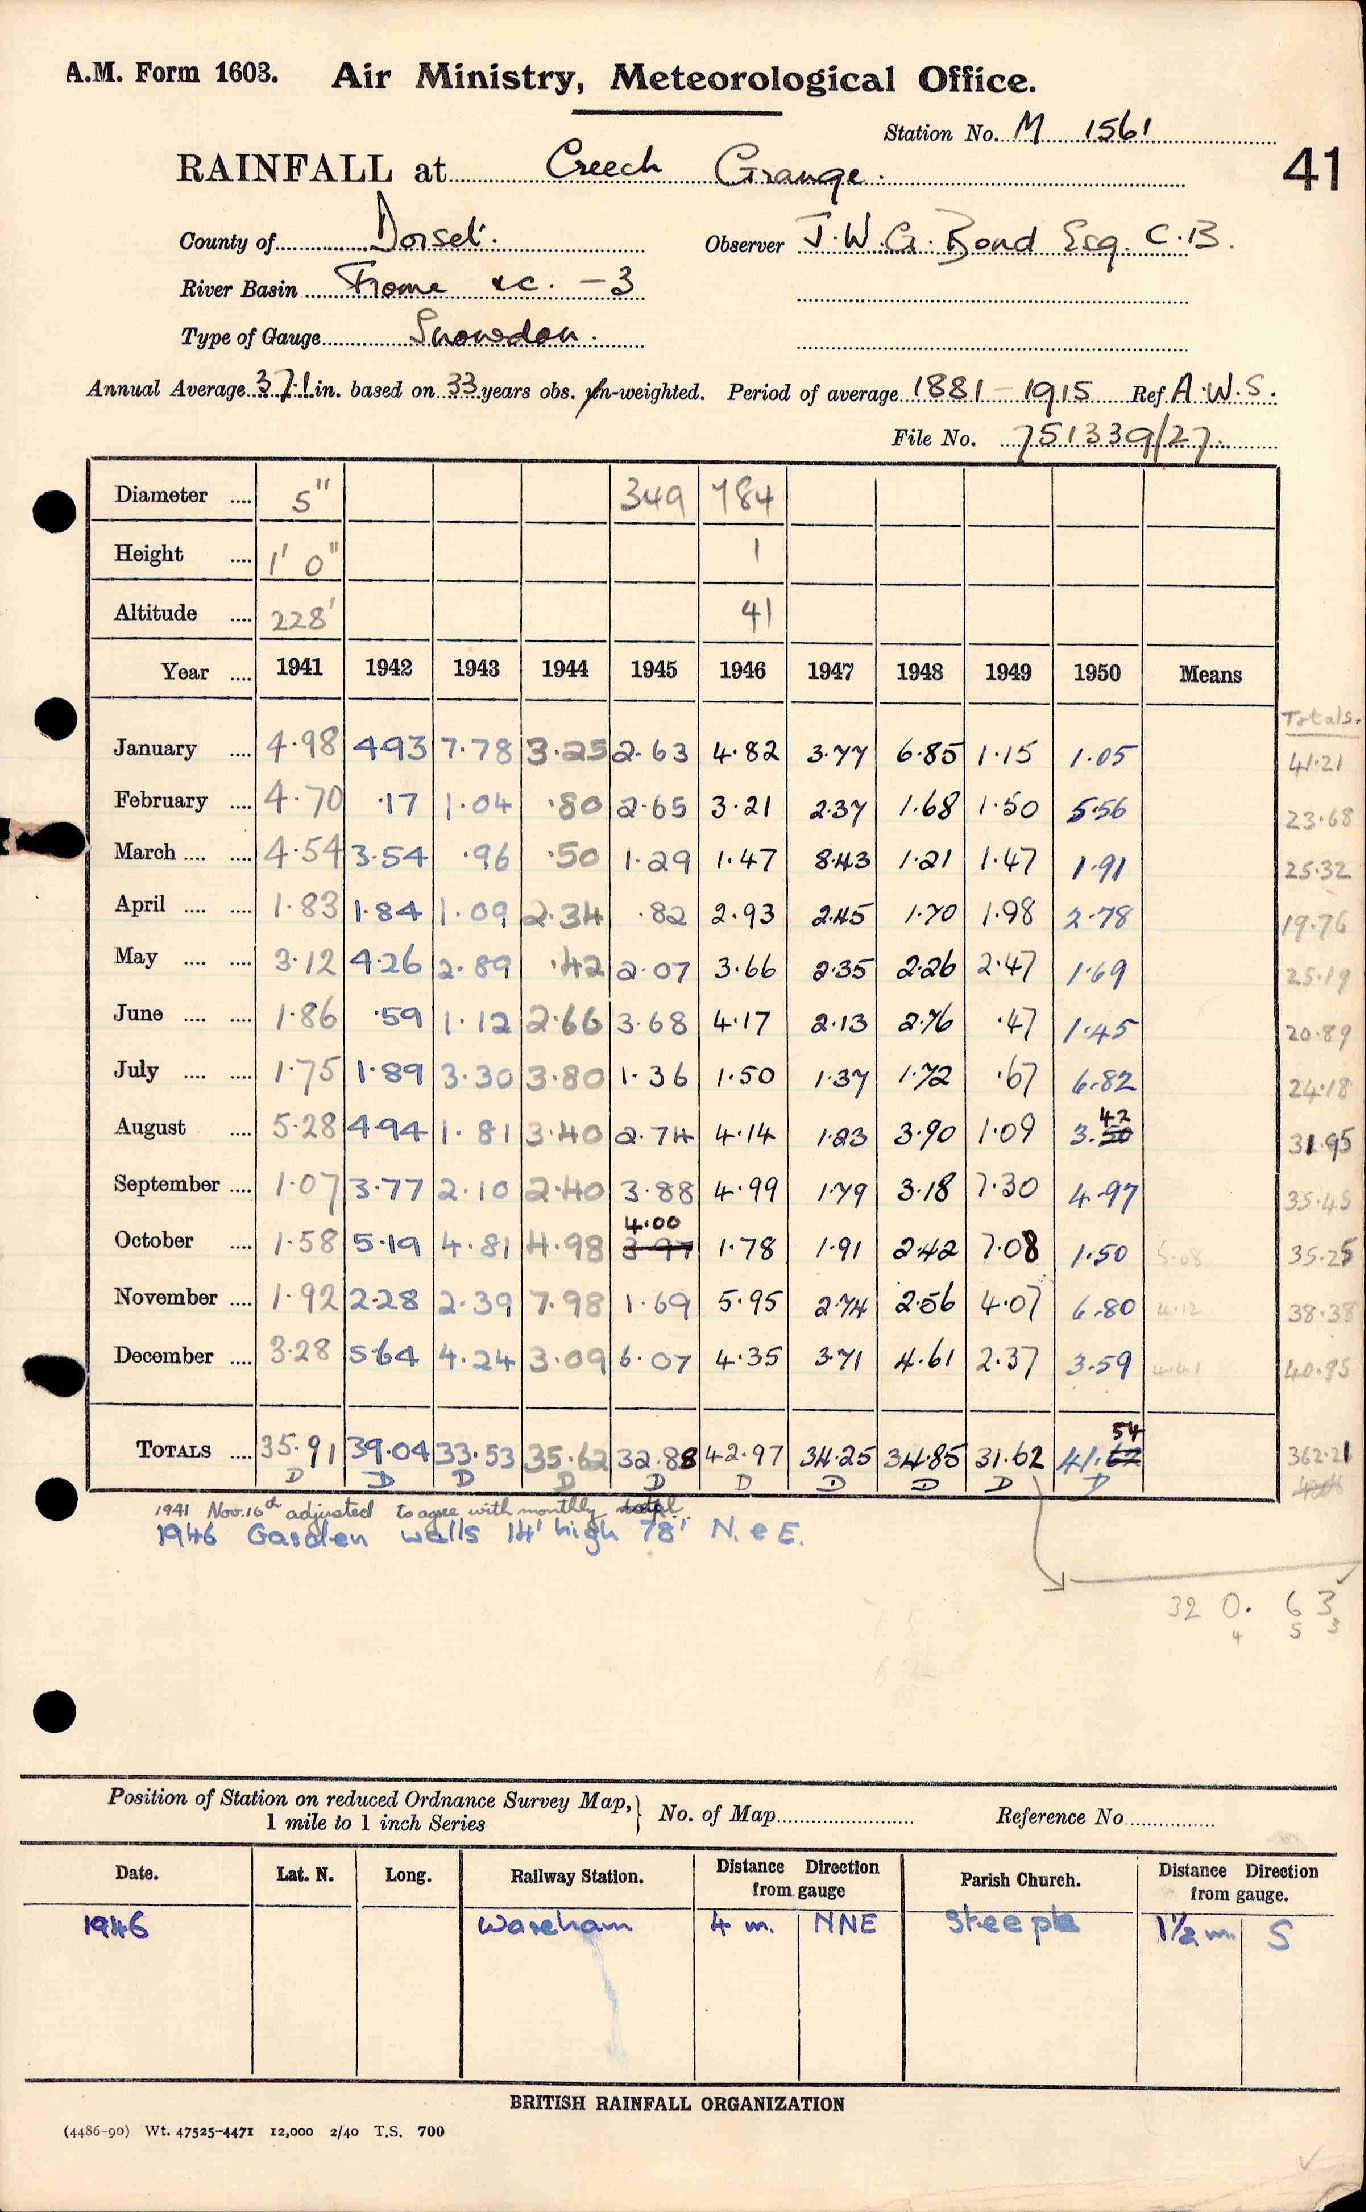 A.M. Form 1603. Air Ministry, Meteorological Office.
Station No. M 1561
41
RAINFALL at Creech Grange.
County of Dorset. Observer J.W.G. Bond Esq. C.B.
River Basin Frome &c. -3
Type of Gauge Snowdon.
Annual Average 37.1 in. based on 33 years obs. un-weighted. Period of average 1881-1915 Ref A.W.S.
File No. 751339/27.
Diameter .... 5" 349 784
Height .... 1' 0" 1
Altitude .... 228' 41
Year .... 1941 1942 1943 1944 1945 1946 1947 1948 1949 1950 Means
Totals.
January .... 4.98 4.93 7.78 3.25 2.63 4.82 3.77 6.85 1.15 1.05 41.21
February .... 4.70 .17 1.04 .80 2.65 3.21 2.37 1.68 1.50 5.56 23.68
March .... .... 4.54 3.54 .96 .50 1.29 1.47 8.43 1.21 1.47 1.91 25.32
April .... .... 1.83 1.84 1.09 2.34 .82 2.93 2.45 1.70 1.98 2.78 19.76
May .... .... 3.12 4.26 2.89 .42 2.07 3.66 2.35 2.26 2.47 1.69 25.19
June .... .... 1.86 .59 1.12 2.66 3.68 4.17 2.13 2.76 .47 1.45 20.89
July .... .... 1.75 1.89 3.30 3.80 1.36 1.50 1.37 1.72 .67 6.82 24.18
42
August .... 5.28 4.94 1.81 3.40 2.74 4.14 1.23 3.90 1.09 3.50 31.95
September .... 1.07 3.77 2.10 2.40 3.88 4.99 1.79 3.18 7.30 4.97 35.45
4.00
October .... 1.58 5.19 4.81 4.98 3.97 1.78 1.91 2.42 7.08 1.50 5.08 35.25
November .... 1.92 2.28 2.39 7.98 1.69 5.95 2.74 2.56 4.07 6.80 4.12 38.38
December .... 3.28 5.64 4.24 3.09 6.07 4.35 3.71 4.61 2.37 3.59 4.41 40.95
54
TOTALS .... 35.91 39.04 33.53 35.62 32.88 42.97 34.25 34.85 31.62 41.62 362.21
D D D D D D D D D D
1941 Nov. 16th adjusted to agree with monthly total.
1946 Garden walls 14' high 78' N. e E.
320.63
4 5 3
Position of Station on reduced Ordnance Survey Map, 1 mile to 1 inch Series } No. of Map Reference No
Date. Lat. N. Long. Railway Station. Distance Direction from gauge Parish Church. Distance Direction from gauge.
1946 Wareham 4 m. NNE Steeple 1½ m. S
BRITISH RAINFALL ORGANIZATION
(4486-90) Wt. 47525-4471 12,000 2/40 T.S. 700